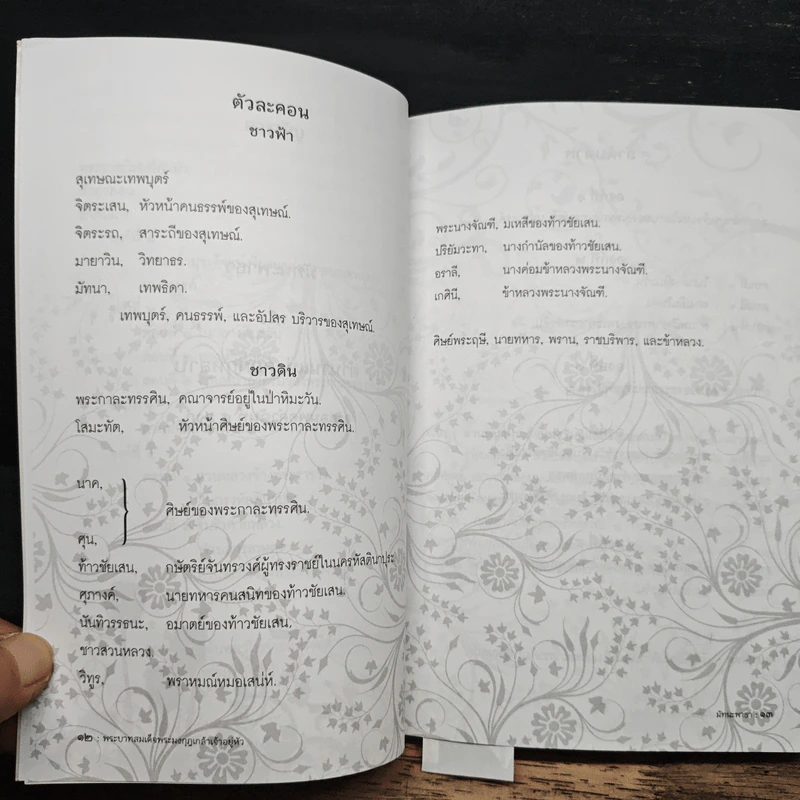 ตัวละคอน
ชาวฟ้า
สุเทษณะเทพบุตร์
จิตระเสน, หัวหน้าคนธรรพ์ของสุเทษณ์.
จิตระรถ, สาระถีของสุเทษณ์.
มายาวิน, วิทยาธร.
มัทนา, เทพธิดา.
เทพบุตร์, คนธรรพ์, และอัปสร บริวารของสุเทษณ์.
ชาวดิน
พระกาละทรรศิน, คณาจารย์อยู่ในป่าหิมะวัน.
โสมะทัต, หัวหน้าศิษย์ของพระกาละทรรศิน.
นาค,
ศิษย์ของพระกาละทรรศิน.
ศุน,
ท้าวชัยเสน, กษัตริย์จันทรวงศ์ผู้ทรงราชย์ในนครหัสตินาปุระ
ศุภางค์, นายทหารคนสนิทของท้าวชัยเสน.
นันทิวรรธนะ, อมาตย์ของท้าวชัยเสน,
ชาวสวนหลวง.
วิทูร, พราหมณ์หมอเสน่ห์.
๑๒ : พระบาทสมเด็จพระมงกุฎเกล้าเจ้าอยู่หัว
พระนางจัณฑี, มเหสีของท้าวชัยเสน.
ปริยัมวะทา, นางกำนัลของท้าวชัยเสน.
อราลี, นางค่อมข้าหลวงพระนางจัณฑี.
เกศินี, ข้าหลวงพระนางจัณฑี.
ศิษย์พระฤษี, นายทหาร, พราน, ราชบริพาร, และข้าหลวง.
มัทนะพาธา : ๑๓